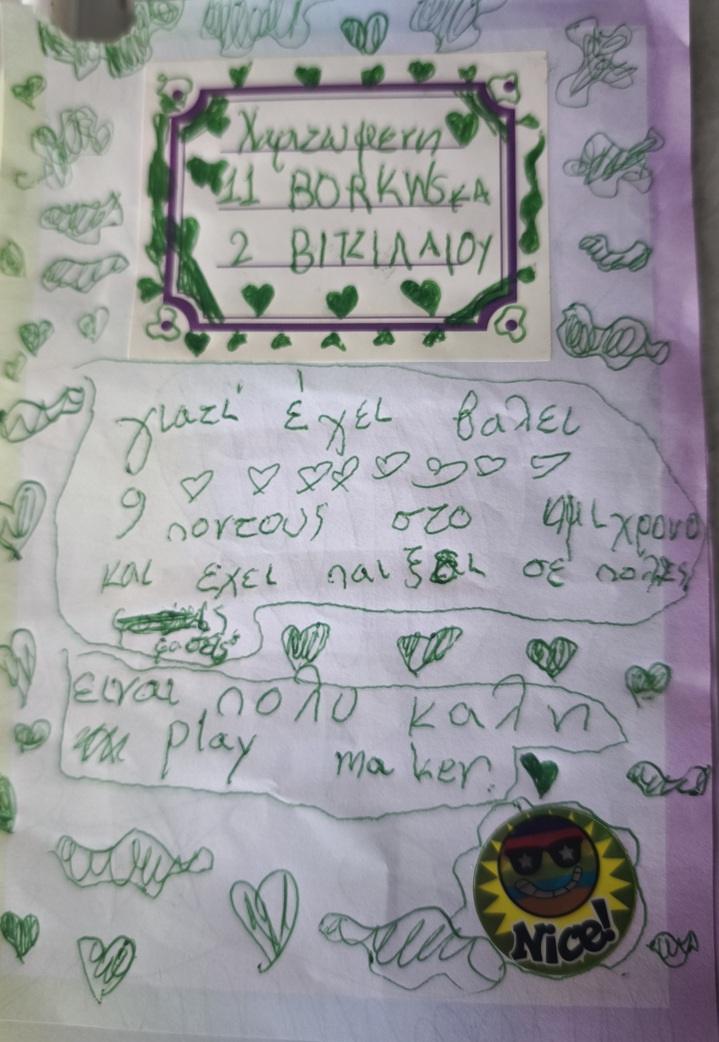 11 BORKWSKA
2 ΒΙΤΖΙΛΑΙΟΥ
γιατί έχει βαλει
9 ποντους στο ημιχρονο
και έχει παιξει σε πολλες
φασεις
ειναι πολυ καλη
play maker.
Nice!